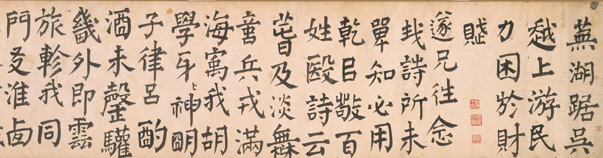 蕪湖踞吳
越上游民
力困於財
賦
遂兄往念
哉詩所未
單知必用
乾㠯敬百
姓毆詩云
及淡
兵戎滿
海寓我胡
學牙神明
子律呂酌
酒未罄驩
畿外即雲
旅軫我同
門淮鹵